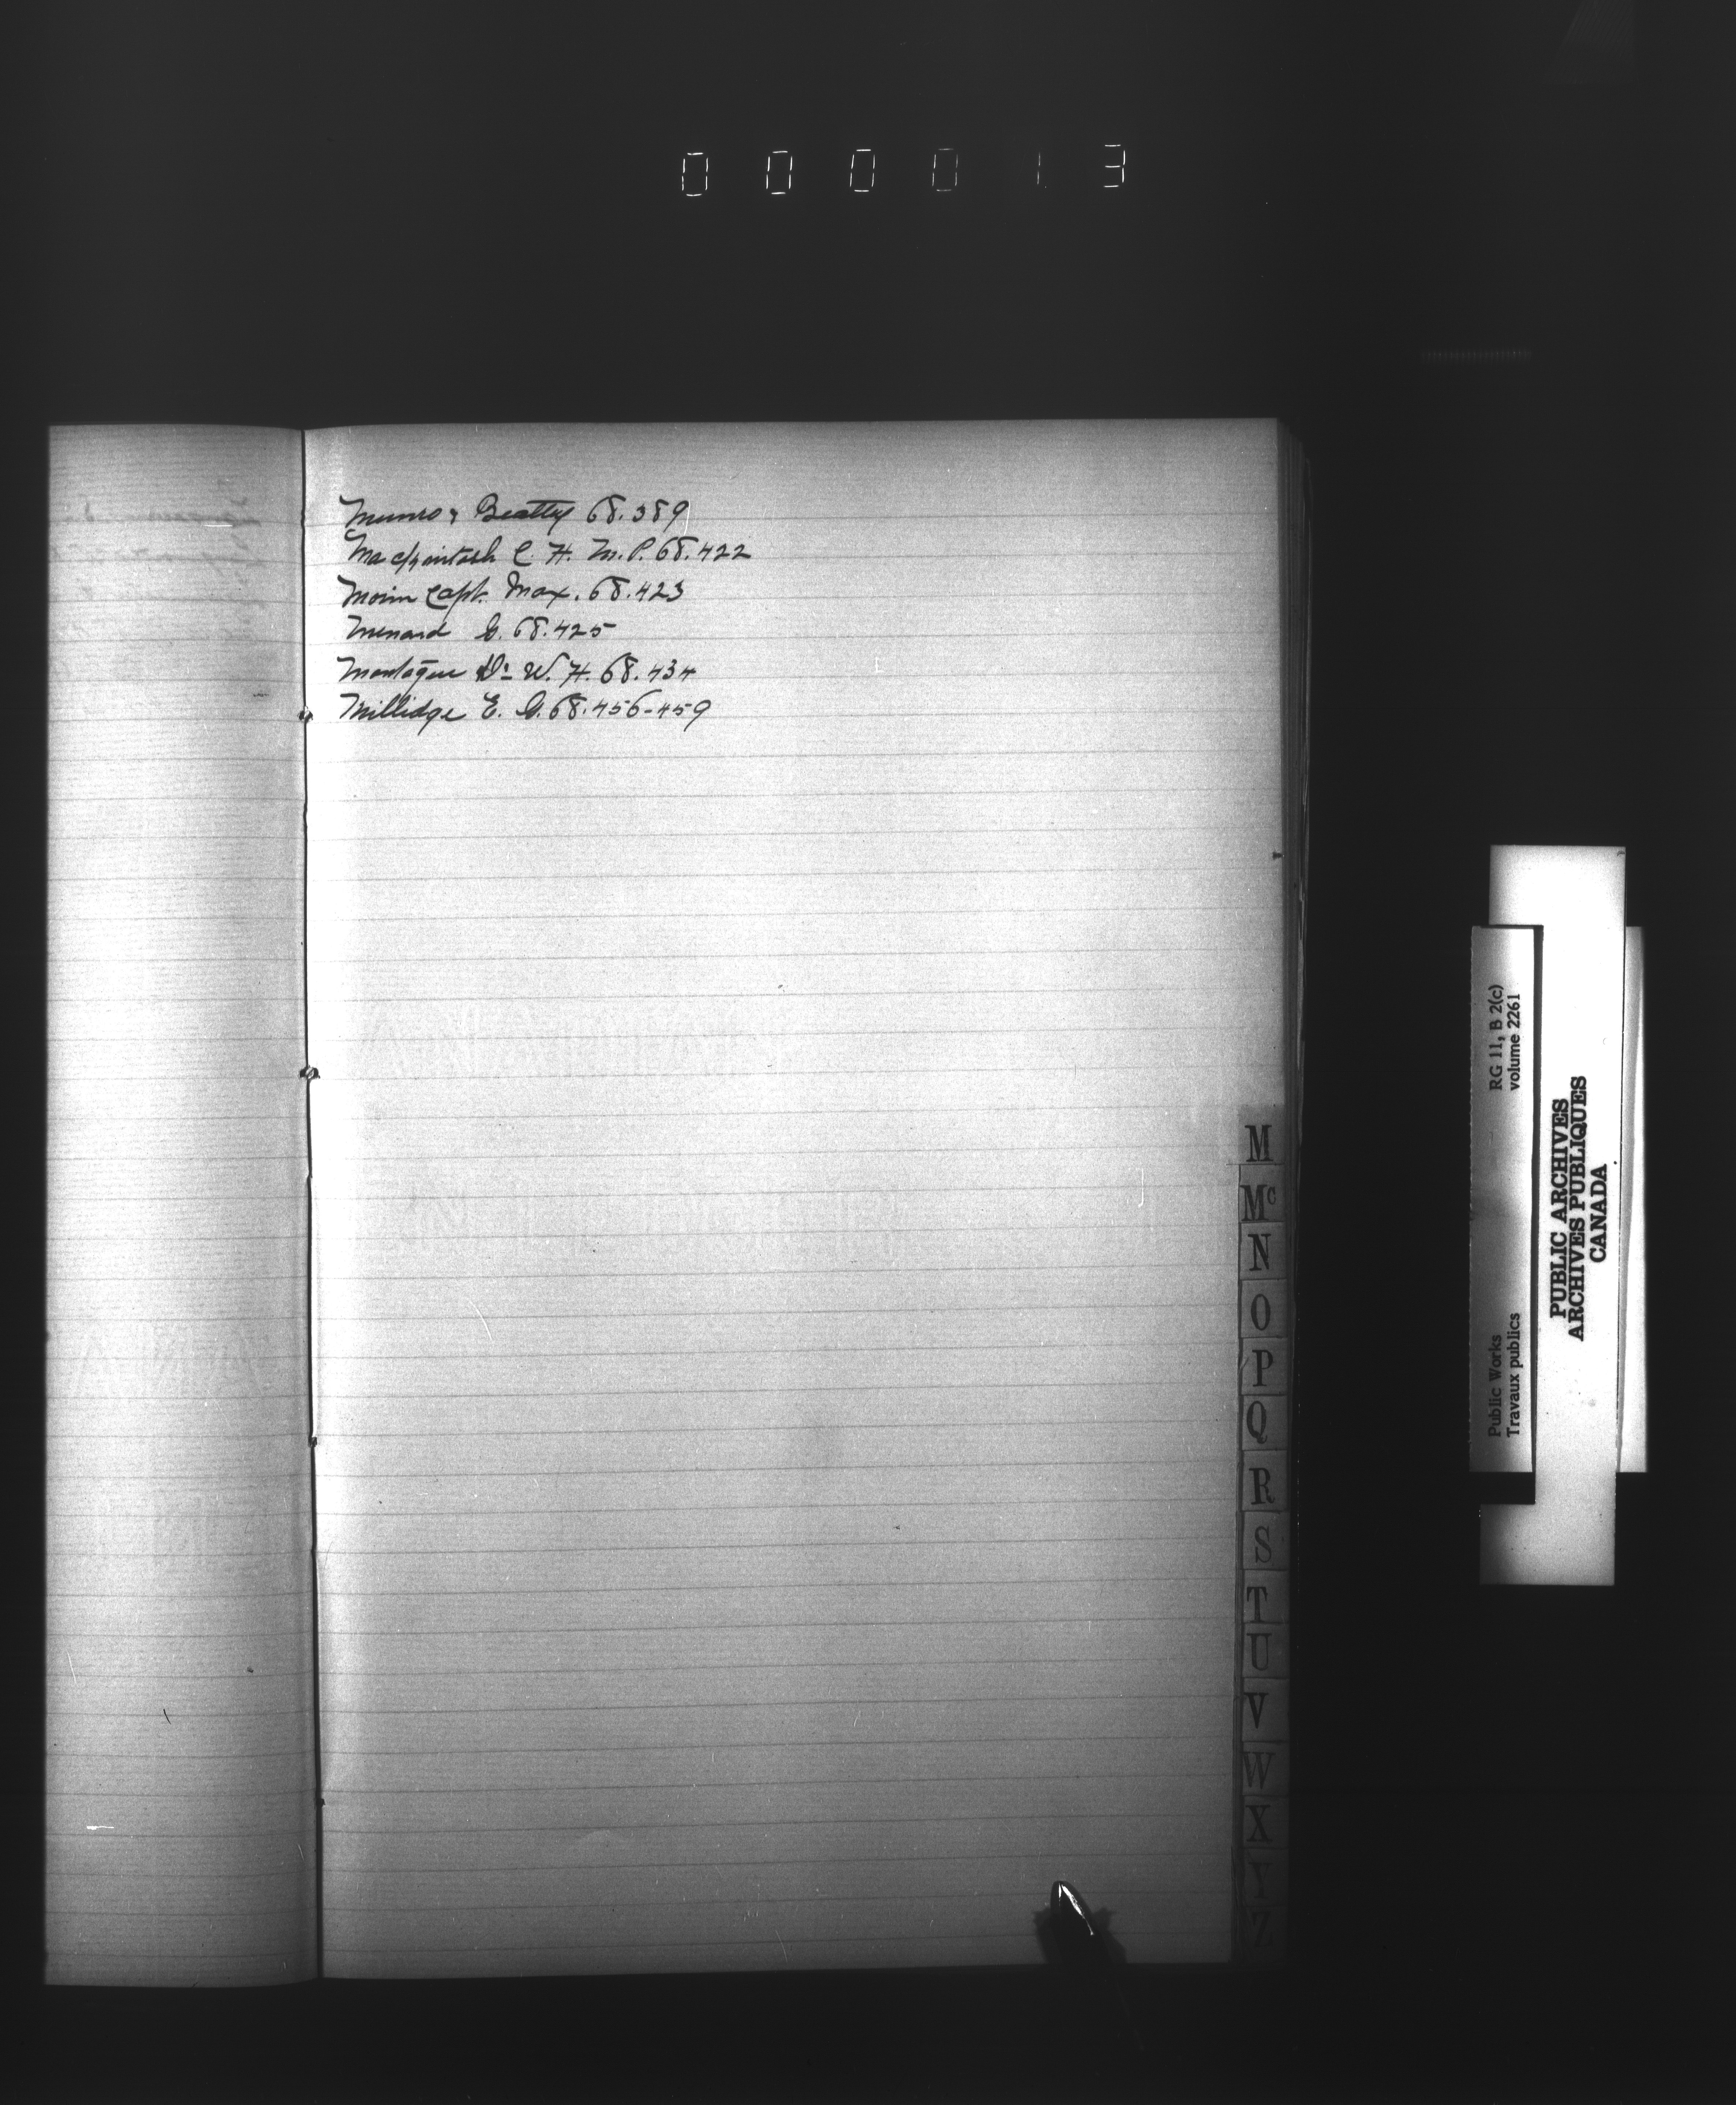 000013
Munro & Beatty 68.389
Mackintosh C. H. M.P. 68.422
Morin Capt. Max. 68.423
Menard G. 68.425
Montague Dr W. H. 68.434
Millidge E. G. 68.456-459
M
Mc
N
O
P
Q
R
S
T
U
V
W
X
Y
Z
Public Works
Travaux publics
RG 11, B 2(c)
volume 2261
PUBLIC ARCHIVES
ARCHIVES PUBLIQUES
CANADA